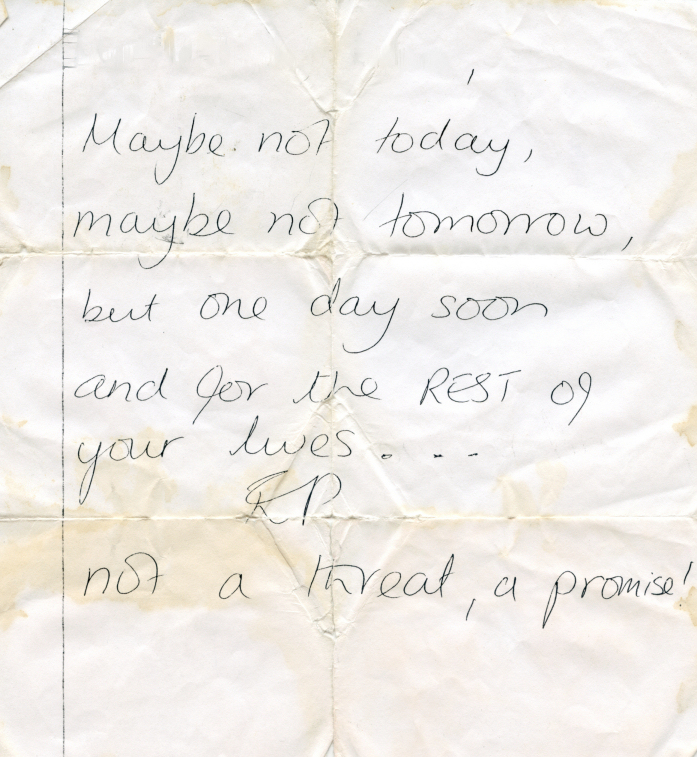 Maybe not today,
maybe not tomorrow,
but one day soon
and for the REST of
your lives...
RP
not a threat, a promise!